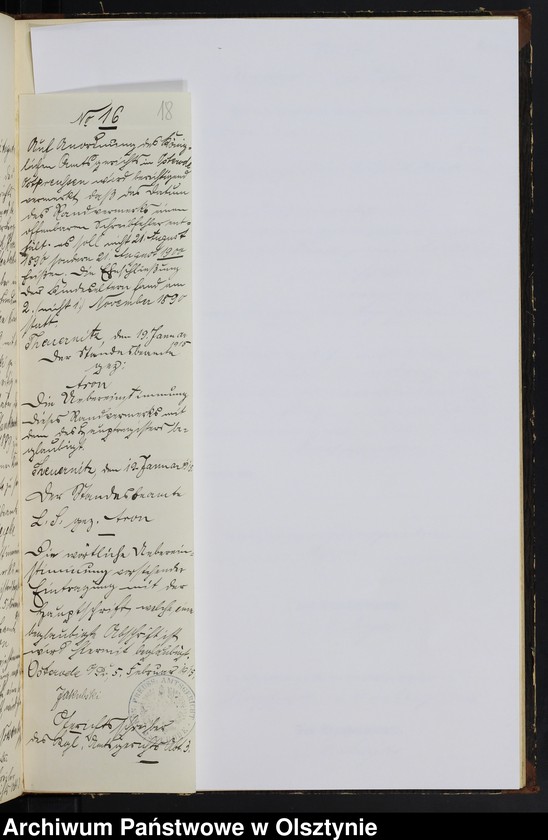 No 16
18
Auf Anordnung des König-
lichen Amtsgerichts in Osterode
Ostpreussen wird berichtigend
vermerkt, daß das Datum
des Randvermerks einen
offenbaren Schreibfehler ent-
hält. es soll nicht 21. August
1890 sondern 21. August 1900
heißen. Die Eheschließung
der Kindeseltern fand am
2. (nicht 1) November 1890
statt.
Theuernitz, den 19. Januar
Der Standesbeamte
gez:
Aron
Die Uebereinstimmung
dieses Randvermerks mit
dem des Hauptregisters be-
glaubigt.
Theuernitz, den 19. Januar
Der Standesbeamte
L. S. gez. Aron
Die wörtliche Ueberein-
stimmung vorstehender
Eintragung mit der
Hauptschrift, welche eine
beglaubigte Abschrift ist
wird hiermit beglaubigt.
Osterode 5. Februar
Gerichtsschreiber
des Kgl. Amtsgerichts Abt. 3.
Archiwum Państwowe w Olsztynie